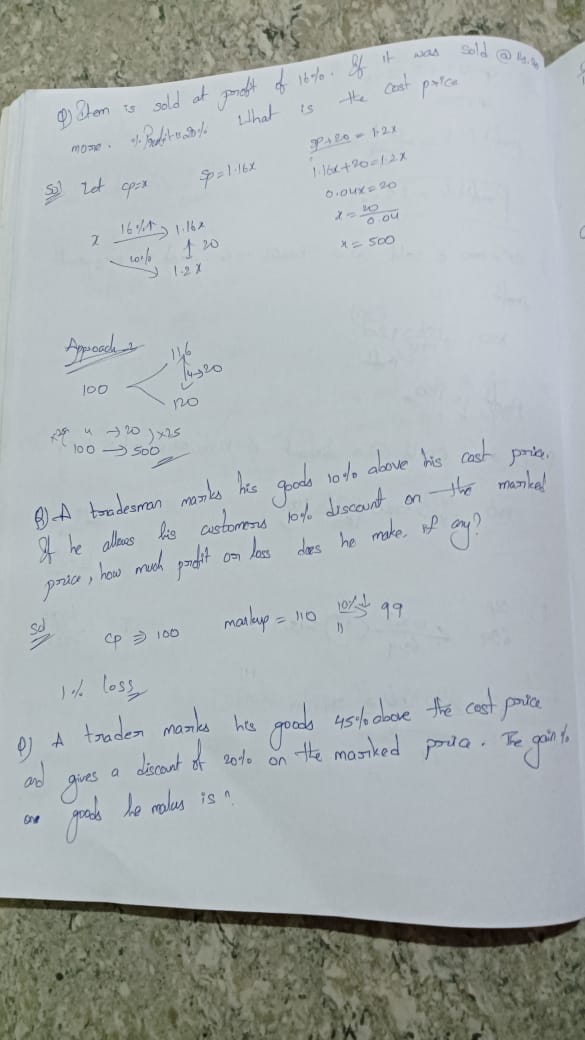 Q) Item is sold at profit of 16%. If it was sold @
more. % Profit is 20% What is the cost price
Sol Let cp=x SP=1.16x
SP+20 = 1.2x
1.16x+20=1.2x
0.04x=20
x = 20/0.04
x = 500
x 16%↑ 1.16x
↑ 20
20% 1.2x
Approach-2
116
100 4→20
120
4 →20 )x25
100 → 500
Q) A tradesman marks his goods 10% above his cost price.
If he allows his customers 10% discount on the marked
price, how much profit or loss does he make, if any?
Sol
CP ⇒ 100 markup = 110 10%↓ 99
11
1% loss
Q) A trader marks his goods 45% above the cost price
and gives a discount of 20% on the marked price. The gain %
one goods he makes is?